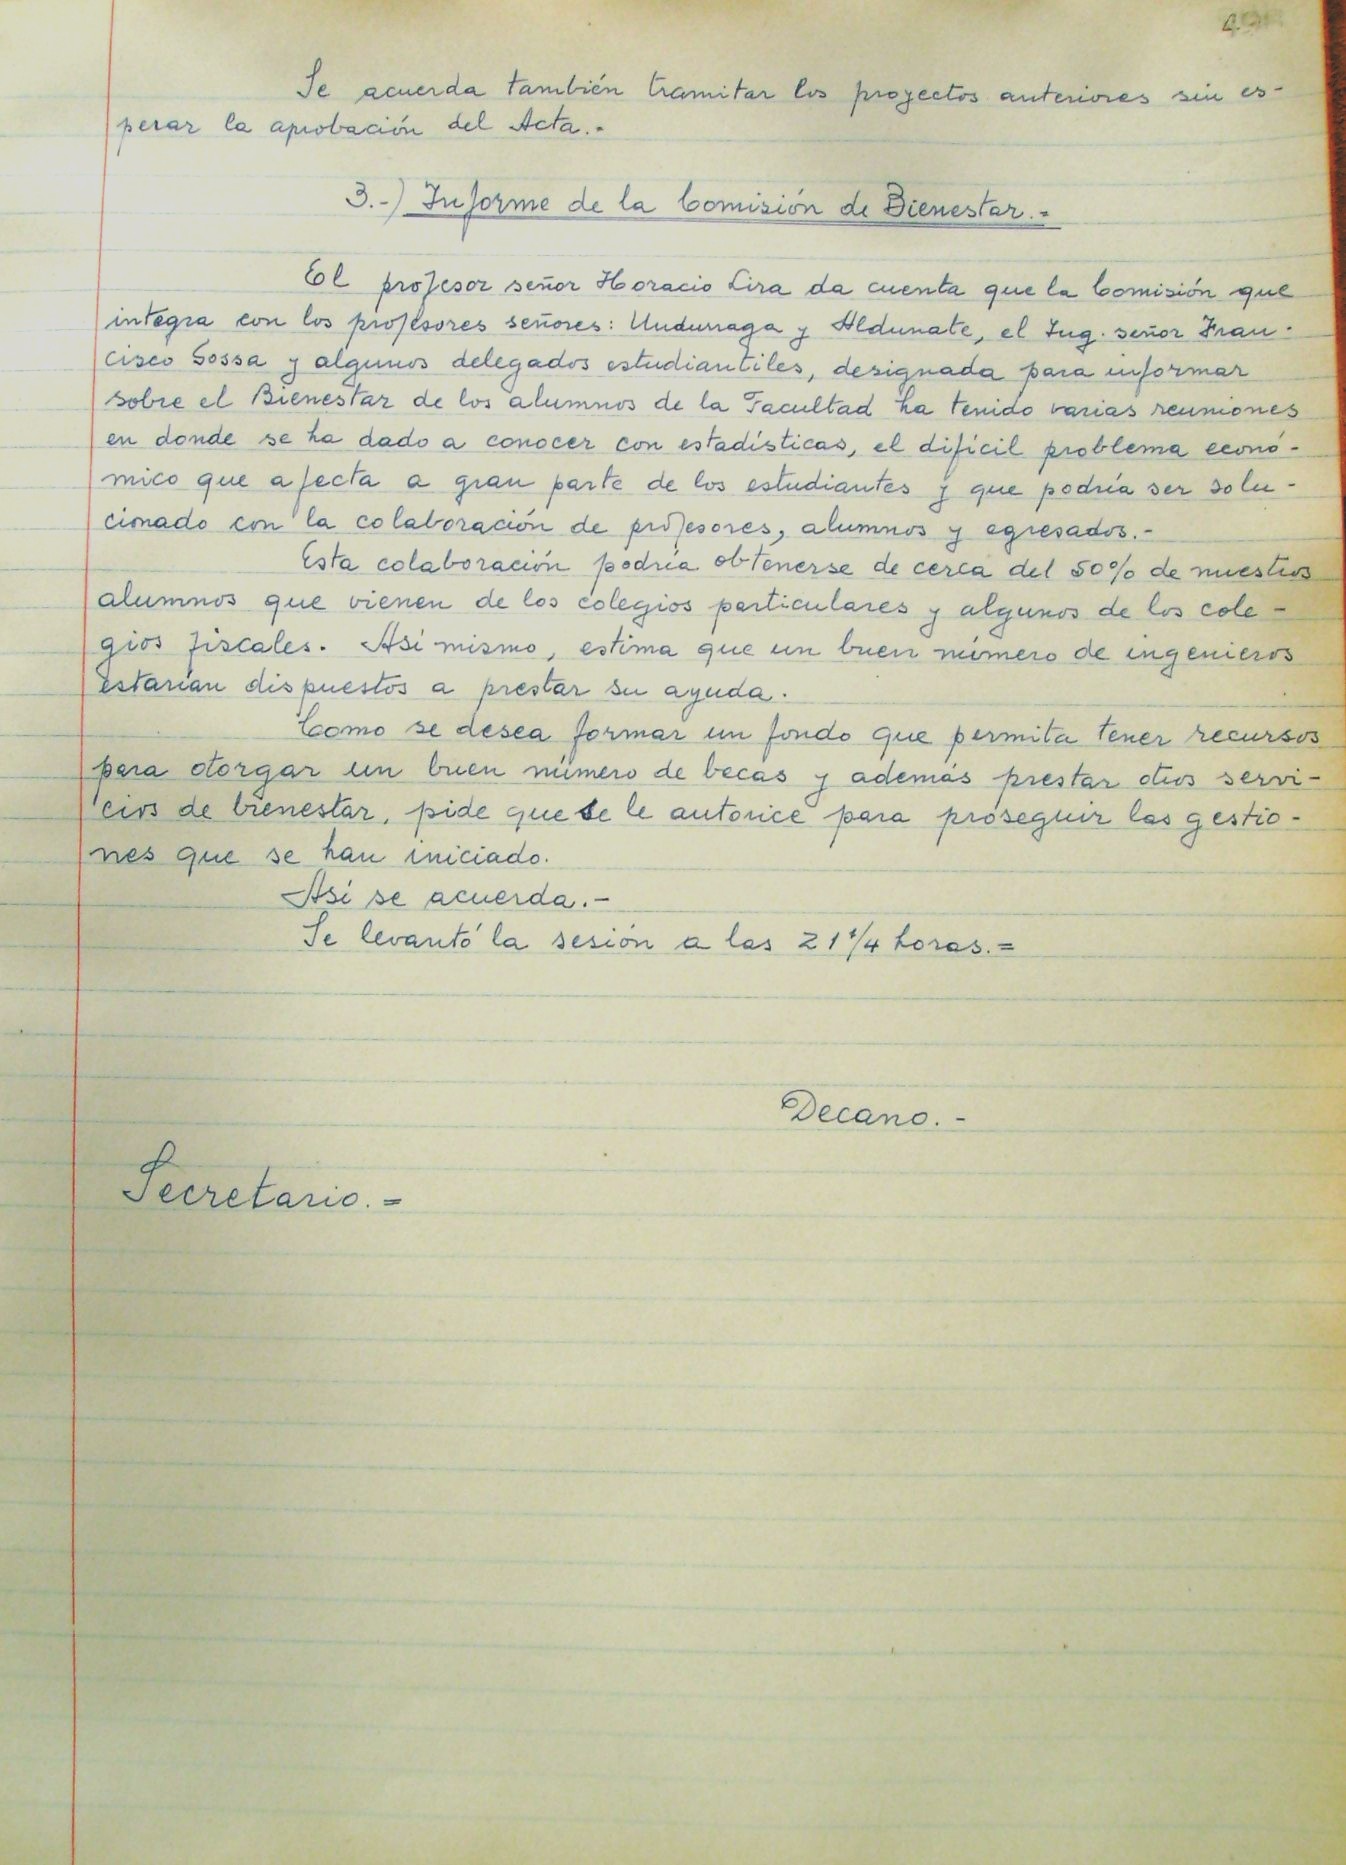 Se acuerda también tramitar los proyectos anteriores sin es-
perar la aprobación del Acta.-
3.-) Informe de la Comisión de Bienestar.=
El profesor señor Horacio Lira da cuenta que la Comisión que
integra con los profesores señores: Undurraga y Aldunate, el Ing. señor Fran-
cisco Gossa y algunos delegados estudiantiles, designada para informar
sobre el Bienestar de los alumnos de la Facultad ha tenido varias reuniones
en donde se ha dado a conocer con estadísticas, el difícil problema econó-
mico que afecta a gran parte de los estudiantes y que podría ser solu-
cionado con la colaboración de profesores, alumnos y egresados.-
Esta colaboración podría obtenerse de cerca del 50% de nuestros
alumnos que vienen de los colegios particulares y algunos de los cole-
gios fiscales. Así mismo, estima que un buen número de ingenieros
estarían dispuestos a prestar su ayuda.
Como se desea formar un fondo que permita tener recursos
para otorgar un buen número de becas y además prestar otros servi-
cios de bienestar, pide que se le autorice para proseguir las gestio-
nes que se han iniciado.
Así se acuerda.-
Se levantó la sesión a las 21 1/4 horas.=
Decano.-
Secretario.=